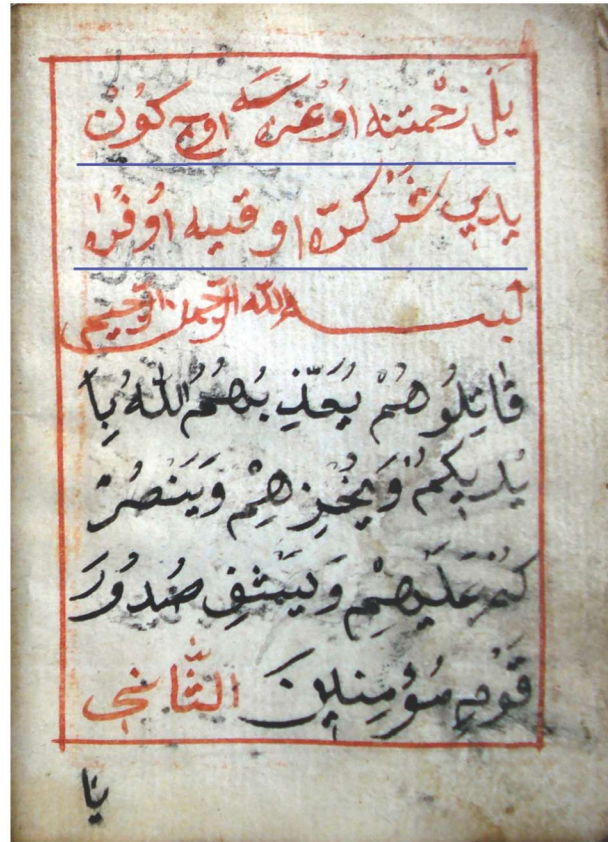 يَلْ زحْمتنه اوُغرسَه اوچ كوُنْ
يديي شَرْ كرّه او قييه اوُفُره
بسم الله الرّحمن الرّحيم
قَاتِلُوهُمْ يُعَذِّ بْهُمُ اللّٰهُ بِاَ
يْدِيكُمْ وَيُخْزِهِمْ وَيَنْصُرْ
كُمْ عَلَيْهِمْ وَيَشْفِ صُدُورَ
قَوْمٍ مُؤْمِنِينَ الثَّانِي
يَا